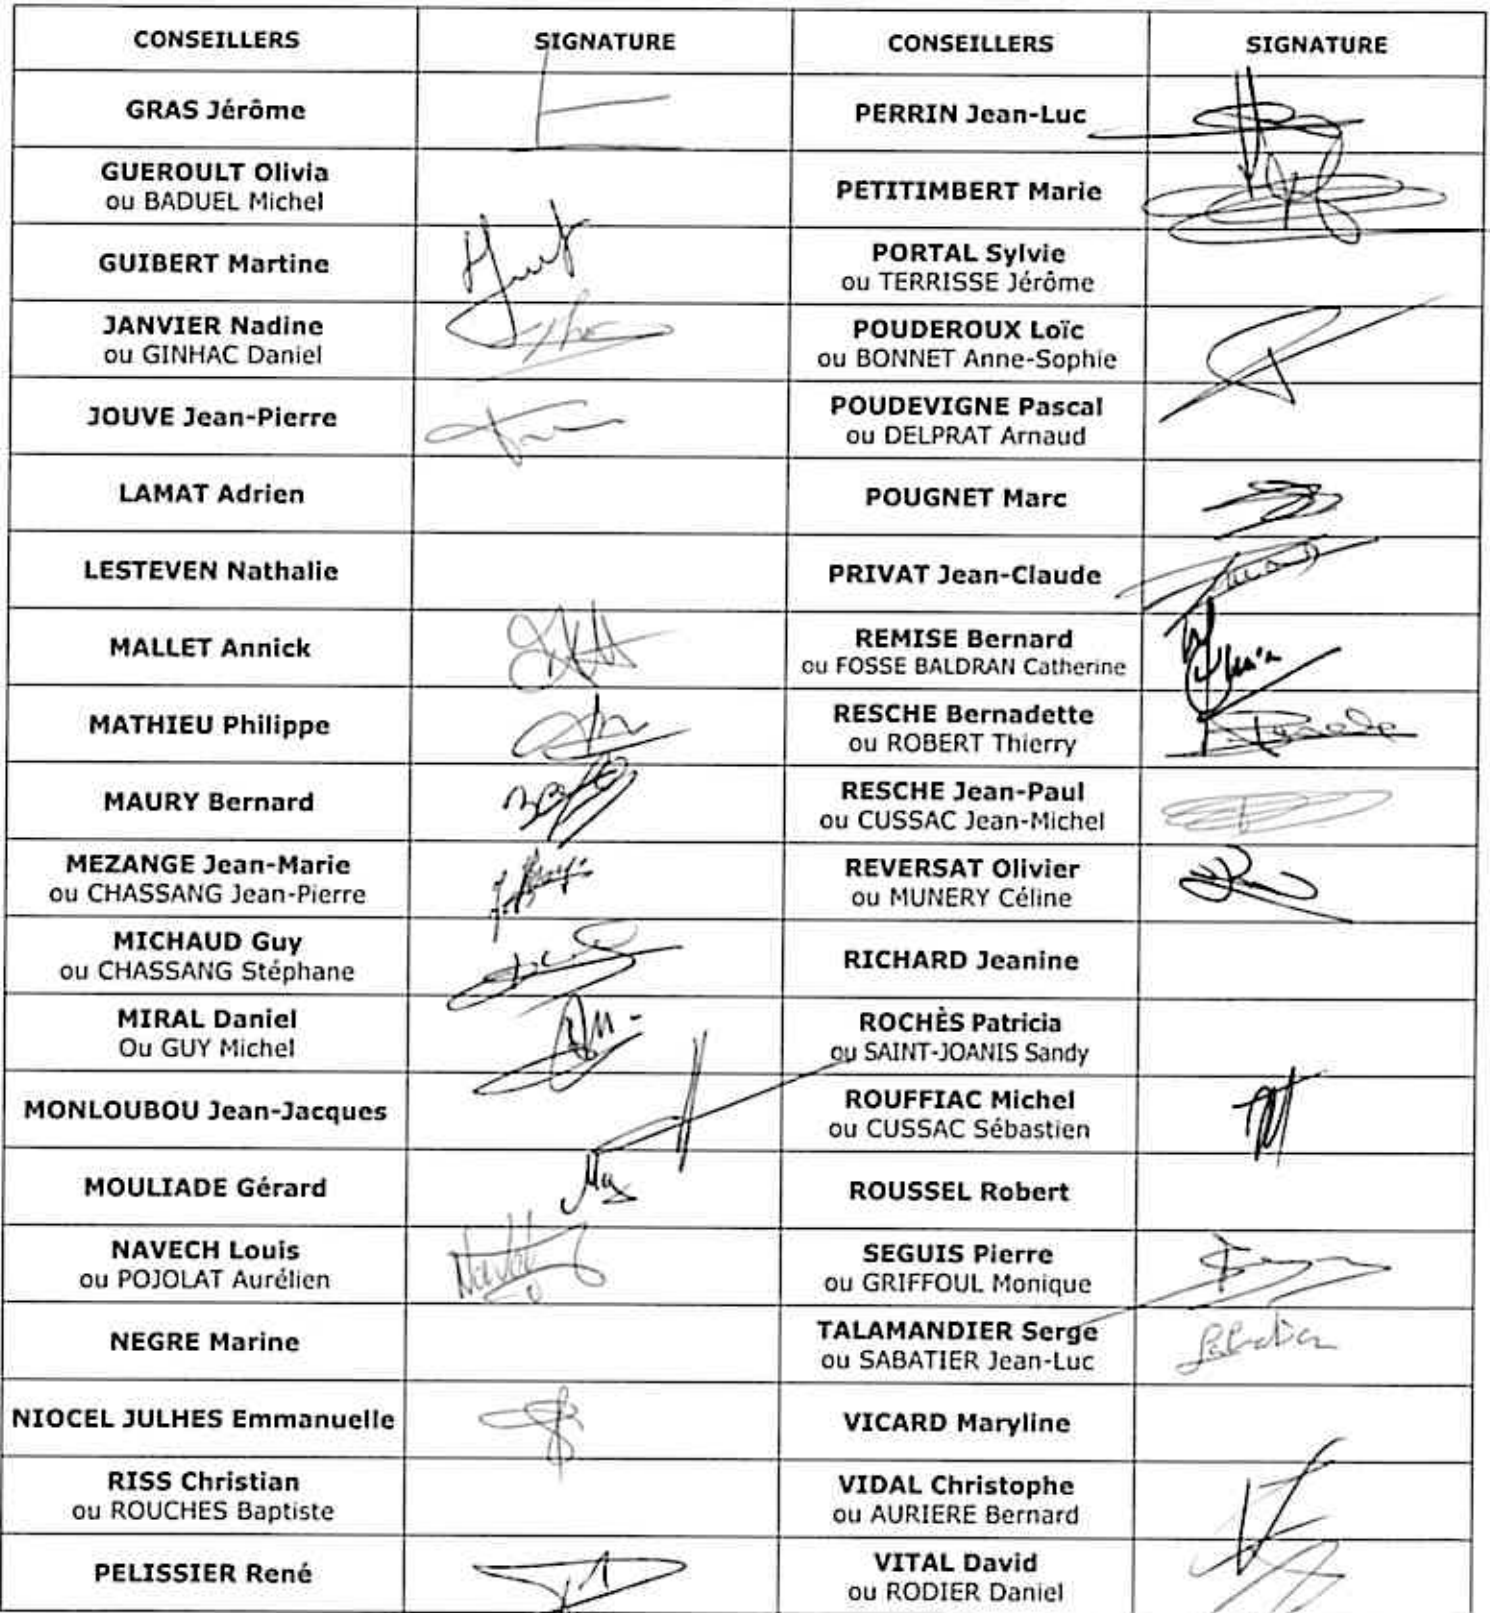 CONSEILLERS SIGNATURE CONSEILLERS SIGNATURE
GRAS Jérôme PERRIN Jean-Luc
GUEROULT Olivia
ou BADUEL Michel
PETITIMBERT Marie
GUIBERT Martine
PORTAL Sylvie
ou TERRISSE Jérôme
JANVIER Nadine
ou GINHAC Daniel
POUDEROUX Loïc
ou BONNET Anne-Sophie
JOUVE Jean-Pierre
POUDEVIGNE Pascal
ou DELPRAT Arnaud
LAMAT Adrien POUGNET Marc
LESTEVEN Nathalie PRIVAT Jean-Claude
MALLET Annick
REMISE Bernard
ou FOSSE BALDRAN Catherine
MATHIEU Philippe
RESCHE Bernadette
ou ROBERT Thierry
MAURY Bernard
RESCHE Jean-Paul
ou CUSSAC Jean-Michel
MEZANGE Jean-Marie
ou CHASSANG Jean-Pierre
REVERSAT Olivier
ou MUNERY Céline
MICHAUD Guy
ou CHASSANG Stéphane
RICHARD Jeanine
MIRAL Daniel
Ou GUY Michel
ROCHÈS Patricia
ou SAINT-JOANIS Sandy
MONLOUBOU Jean-Jacques
ROUFFIAC Michel
ou CUSSAC Sébastien
MOULIADE Gérard ROUSSEL Robert
NAVECH Louis
ou POJOLAT Aurélien
SEGUIS Pierre
ou GRIFFOUL Monique
NEGRE Marine
TALAMANDIER Serge
ou SABATIER Jean-Luc
Sabatier
NIOCEL JULHES Emmanuelle VICARD Maryline
RISS Christian
ou ROUCHES Baptiste
VIDAL Christophe
ou AURIERE Bernard
PELISSIER René
VITAL David
ou RODIER Daniel